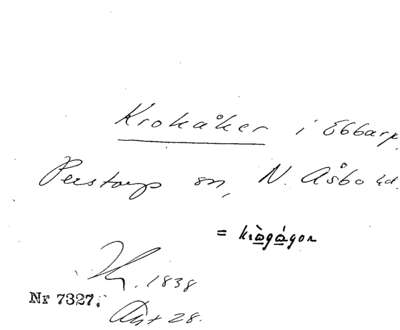 Krokåker i Ebbarp,
Perstorp sn, N. Åsbo hd.
= kràgágor
Hy. 1838
Nr 7327.
Akt 28.